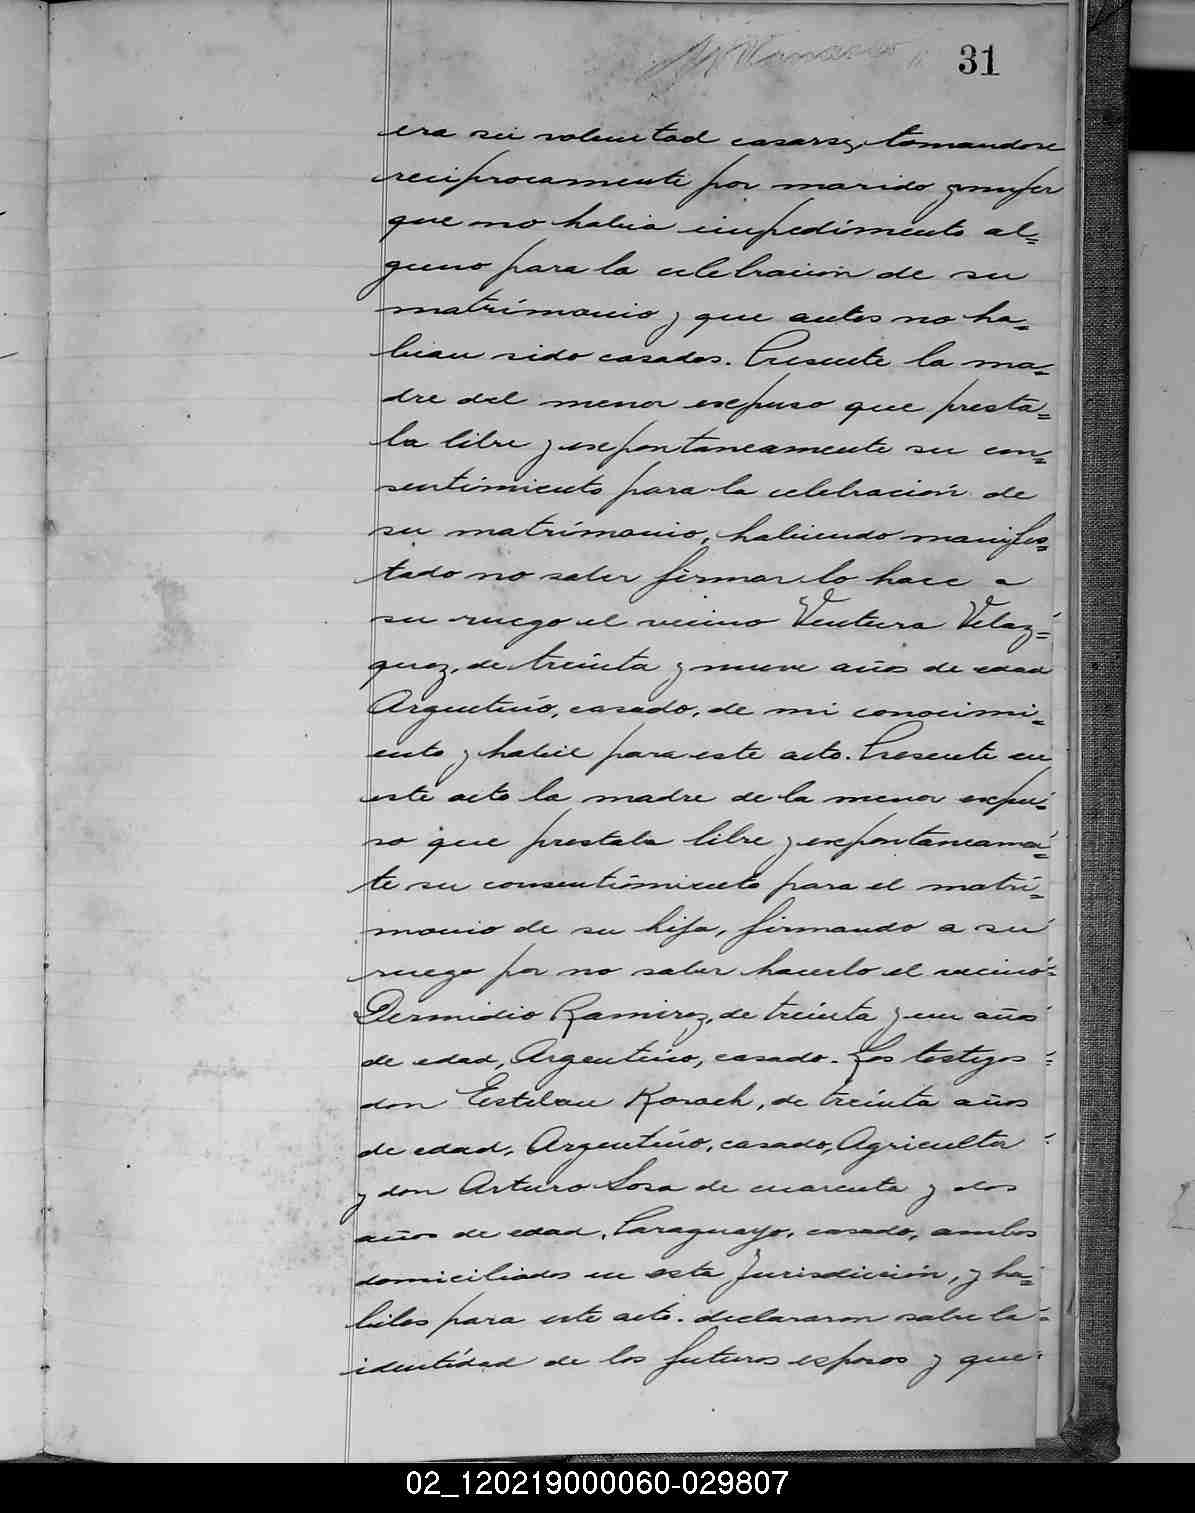 31
era su voluntad casarse, tomandose
reciprocamente por marido y mujer
que no habia impedimento al=
guno para la celebración de su
matrimonio y que antes no ha=
bian sido casados. Presente la ma=
dre del menor expuso que presta=
ba libre y expontaneamente su con=
sentimiento para la celebración de
su matrimonio, habiendo manifes=
tado no saber firmar lo hace a
su ruego el vecino Ventura Velaz=
quez, de treinta y nueve años de edad
Argentino, casado, de mi conocimi=
ento y habil para este acto. Presente en
este acto la madre de la menor expu=
so que prestaba libre y expontaneamen=
te su consentimiento para el matri=
monio de su hija, firmando a su
ruego por no saber hacerlo el vecino
Dermidio Ramirez, de treinta y un años
de edad, Argentino, casado. Los testigos
don Esteban Korach, de treinta años
de edad, Argentino, casado, Agricultor
y don Arturo Sosa de cuarenta y dos
años de edad, Paraguayo, casado, ambos
domiciliados en esta Jurisdicción, y ha=
biles para este acto. declararon sobre la
identidad de los futuros esposos y que
02_120219000060-029807